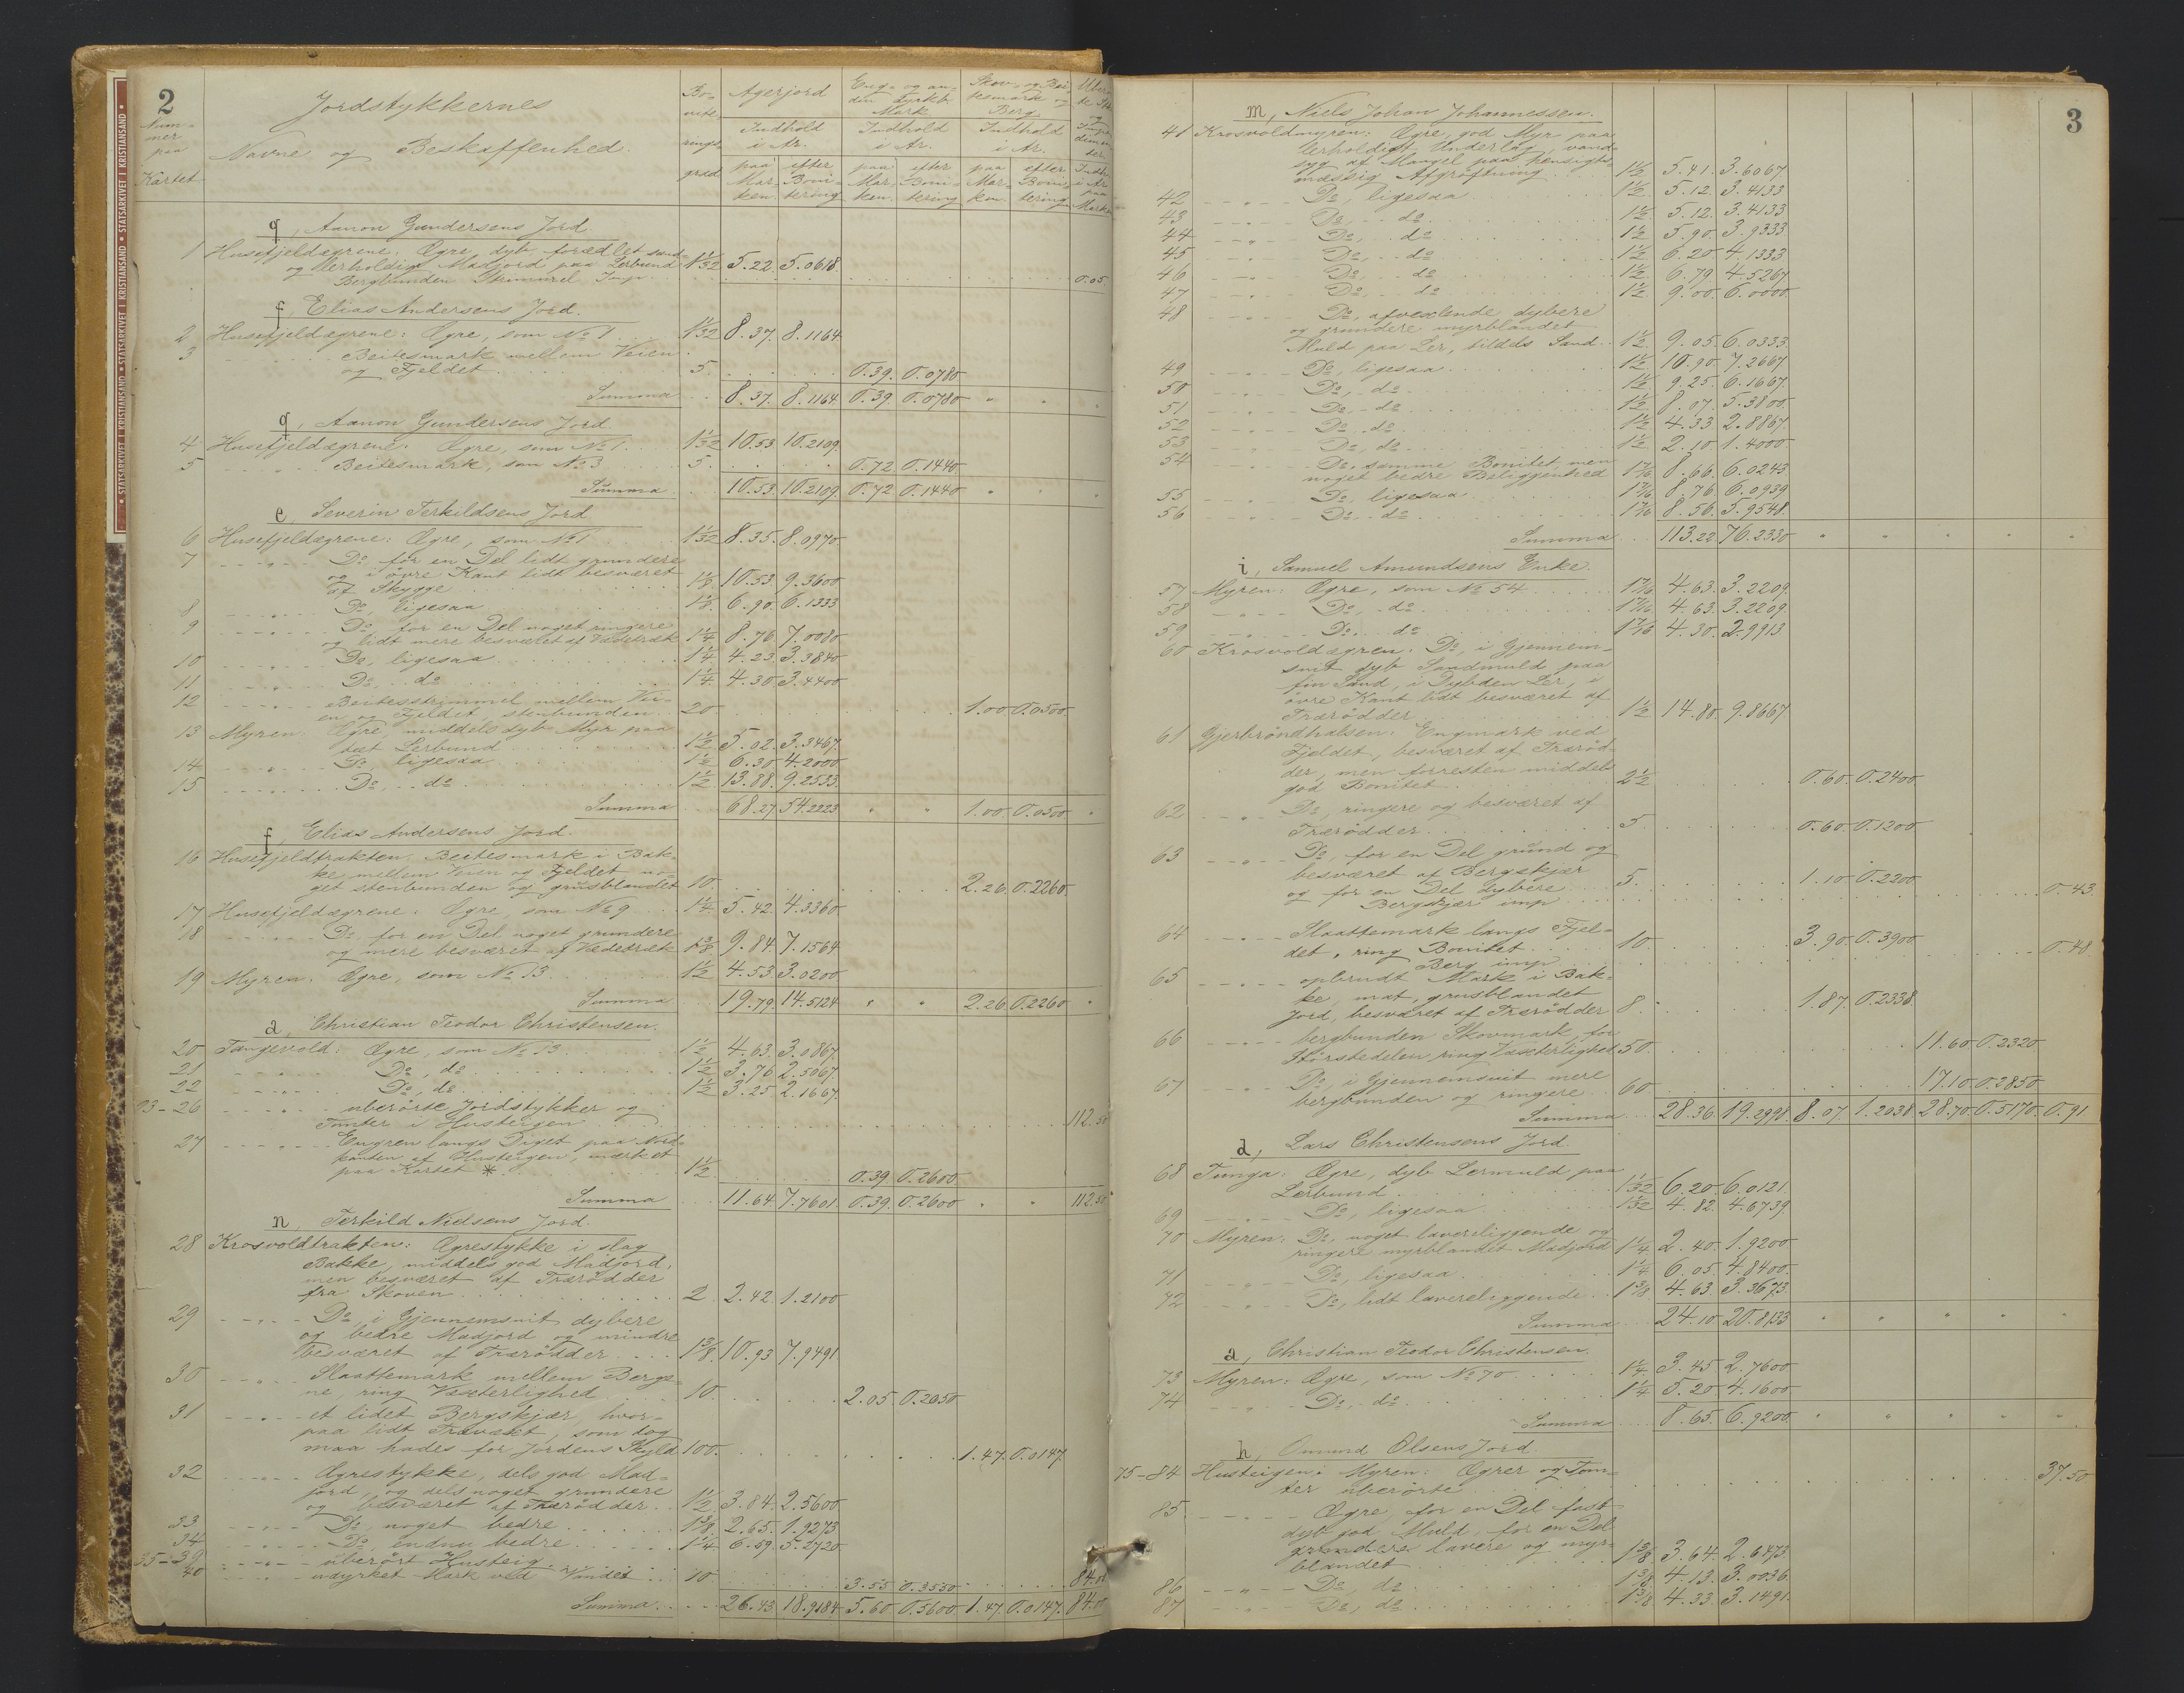 2
Nummer paa Kartet
Jordstykkernes
Navne og Beskaffenhed.
Boniterings grad
Agerjord Indhold i Ar. paa Marken efter Bonitering
Eng- og anden dyrkb. Mark Indhold i Ar. paa Marken efter Bonitering
Indhold i Ar. paa Marken efter Bonitering
g, Aanon Gundersens Jord.
1 Husefjeldægrene: Ægre, dyb forædlet sand-
og lerholdig Madjord paa Lerbund 1 1/32 5.22. 5.0618.
Bergbunden Strimmel Imp. 0.05
f, Elias Andersens Jord.
2 Husefjeldægrene: Ægre, som № 1. 1 1/32 8.37. 8.1164.
3 Beitesmark mellem Veien
og Fjeldet 5. 0.39. 0.0780
Summa 8.37. 8.1164 0.39. 0.0780
g, Aanon Gundersens Jord.
4 Husefjeldægrene: Ægre, som № 1. 1 1/32 10.53 10.2109.
5 Beitesmark, som № 3 5. 0.72 0.1440
Summa 10.53. 10.2109. 0.72 0.1440
e, Severin Terkildsens Jord
6 Husefjeldægrene: Ægre, som № 1 1 1/32 8.35. 8.0970.
7 Do for en Del lidt grundere
og i øvre Kant lidt besværet
af Skygge 1 1/8 10.53 9.3600
8 Do, ligesaa 1 1/8 6.90. 6.1333
9 Do for en Del noget ringere
og lidt mere besværet af Vædetræk 1 1/4 8.76 7.0080
10 Do, ligesaa 1 1/4 4.23. 3.3840
11 Do, do 1 1/4 4.30 3.4400
12 Beitesstrimmel mellem Vei-
en og Fjeldet, stenbunden 20 1.00 0.0500
13 Myren: Ægre, middels dyb Myr paa
tæt Lerbund 1 1/2 5.02. 3.3467.
14 Do, ligesaa 1 1/2 6.30 4.2000
15 Do, do 1 1/2 13.88. 9.2533.
Summa 68.27. 54.2223 1.00. 0.0500
f, Elias Andersens Jord.
16 Husefjeldtrakten: Beitesmark i Bak-
ke mellem Veien og Fjeldet, no-
get stenbunden og grusblandet 10. 2.26. 0.2260.
17 Husefjeldægrene: Ægre, som № 9 1 1/4 5.42. 4.3360
18 Do for en Del noget grundere
og mere besværet af Vædetræk 1 3/8 9.84 7.1564
19 Myren: Ægre, som № 13 1 1/2 4.53 3.0200
Summa 19.79. 14.5124 2.26 0.2260
a, Christian Teodor Christensen.
20 Tangevold: Ægre, som № 13. 1 1/2 4.63. 3.0867.
21 Do, do 1 1/2 3.76 2.5067
22 Do, do 1 1/2 3.25 2.1667.
23-26 uberørte Jordstykker og
Tomter i Husteigen 112.50
27 Engren langs Diget paa Nord-
kanten af Husteigen, mærket
paa Kartet * 1 1/2 0.39. 0.2600.
Summa 11.64. 7.7601. 0.39. 0.2600 112.50
n, Terkild Nielsens Jord.
28 Krosvoldtrakten: Ægrestykke i slag
Bakke, middels god Madjord,
men besværet af Trærødder
fra Skoven 2 2.42. 1.2100
29 Do, i Gjennemsnit dybere
og bedre Madjord og mindre
besværet af Trærødder 1 3/8 10.93 7.9491.
30 Slaattemark mellem Berge-
ne, ring Væxterlighed 10. 2.05. 0.2050
31 et lidet Bergskjær, hvor-
paa lidt Trævækt, som dog
maa hades for Jordens Skyld 100. 1.47. 0.0147
32 Ægrestykke, dels god Mad-
jord, og dels noget grundere
og besværet af Trærødder 1 1/2 3.84. 2.5600
33 Do noget bedre 1 3/8 2.65. 1.9273
34 Do endnu bedre 1 1/4 6.59. 5.2720
35-39 uberørt Husteig 84.00
40 udyrket Mark ved Vandet 10. 3.55 0.3550
Summa 26.43 18.9184 5.60 0.5600 1.47. 0.0147. 84.00
3
m, Niels Johan Johannessen.
41 Krosvoldmyren: Ægre, god Myr paa
lerholdigt Underlag, vand-
syg af Mangel paa hensigts-
mæssig Afgrøftning 1 1/2 5.41. 3.6067.
42 Do, ligesaa 1 1/2 5.12. 3.4133
43 Do, do 1 1/2 5.12. 3.4133
44 Do, do 1 1/2 5.90. 3.9333
45 Do, do 1 1/2 6.20 4.1333
46 Do, do 1 1/2 6.79 4.5267
47 Do, do 1 1/2 9.00. 6.0000
48 Do, afvexlende dybere
og grundere myrblandet
Muld paa Ler, tildels Sand 1 1/2 9.05. 6.0333.
49 Do, ligesaa 1 1/2 10.90. 7.2667.
50 Do, do 1 1/2 9.25. 6.1667.
51 Do, do 1 1/2 8.07. 5.3800
52 Do, do 1 1/2 4.33 2.8867.
53 Do, do 1 1/2 2.10. 1.4000
54 Do, samme Bonitet, men
noget bedre Beliggenhed 1 7/16 8.66. 6.0243
55 Do, ligesaa 1 7/16 8.76 6.0939
56 Do, do 1 7/16 8.56. 5.9548.
Summa 113.22 76.2330
i, Samuel Amundsens Enke.
57 Myren: Ægre, som № 54 1 7/16 4.63. 3.2209.
58 Do, do 1 7/16 4.63. 3.2209.
59 Do, do 1 7/16 4.30. 2.9913
60 Krosvoldægren: Do, i Gjennem-
snit dyb Sandmuld paa
fin Sand, i Dybden Ler, i
øvre Kant lidt besværet af
Trærødder 1 1/2 14.80. 9.8667
61 Gjerbrøndhalsen: Engmark ved
Fjeldet, besværet af Trærød-
der, men forresten middels
god Bonitet 2 1/2 0.60. 0.2400.
62 Do, ringere og besværet af
Trærødder 5. 0.60. 0.1200
63 Do, for en Del grund og
besværet af Bergskjær
og for en Del dybere 5. 1.10 0.2200
Bergskjær imp 0.43
64 Slaattemark langs Fjel-
det, ring Bonitet 10 3.90. 0.3900
Berg imp 0.48
65 opbrudt Mark i Bak-
ke, mat, grusblandet
Jord, besværet af Trærødder 8. 1.87. 0.2338
66 bergbunden Skovmark, for
Størstedelen ring Væxterlighed 50. 11.60. 0.2320
67 Do, i Gjennemsnit mere
bergbunden og ringere 60 17.10 0.2850
Summa 28.36. 19.2998. 8.07. 1.2038 28.70. 0.5170. 0.91
d, Lars Christensens Jord.
68 Tunga: Ægre, dyb Lermuld paa
Lerbund 1 1/32 6.20. 6.0121.
69 Do, ligesaa 1 1/32 4.82. 4.6739.
70 Myren: Do, noget lavereliggende og
ringere myrblandet Madjord 1 1/4 2.40. 1.9200.
71 Do, ligesaa 1 1/4 6.05. 4.8400
72 Do, lidt lavereliggende 1 3/8 4.63 3.3673.
Summa 24.10 20.8133
a, Christian Teodor Christensen.
73 Myren: Ægre, som № 70 1 1/4 3.45 2.7600
74 Do, do 1 1/4 5.20 4.1600
Summa 8.65. 6.9200
h, Omund Olsens Jord.
75-84 Husteigen i Myren: Ægrer og Tom-
ter uberørte 37.50
85 Ægre, for en Del fast
dyb god Muld, for en Del
grundere lavere og myr-
blandet 1 3/8 3.64. 2.6473.
86 Do, do 1 3/8 4.13. 3.0036.
87 Do, do 1 3/8 4.33. 3.1491.
STATSARKIVET I KRISTIANSAND • STATSARKIVET I KRISTIANSAND • STATSARKIVET I KRISTIANSAND